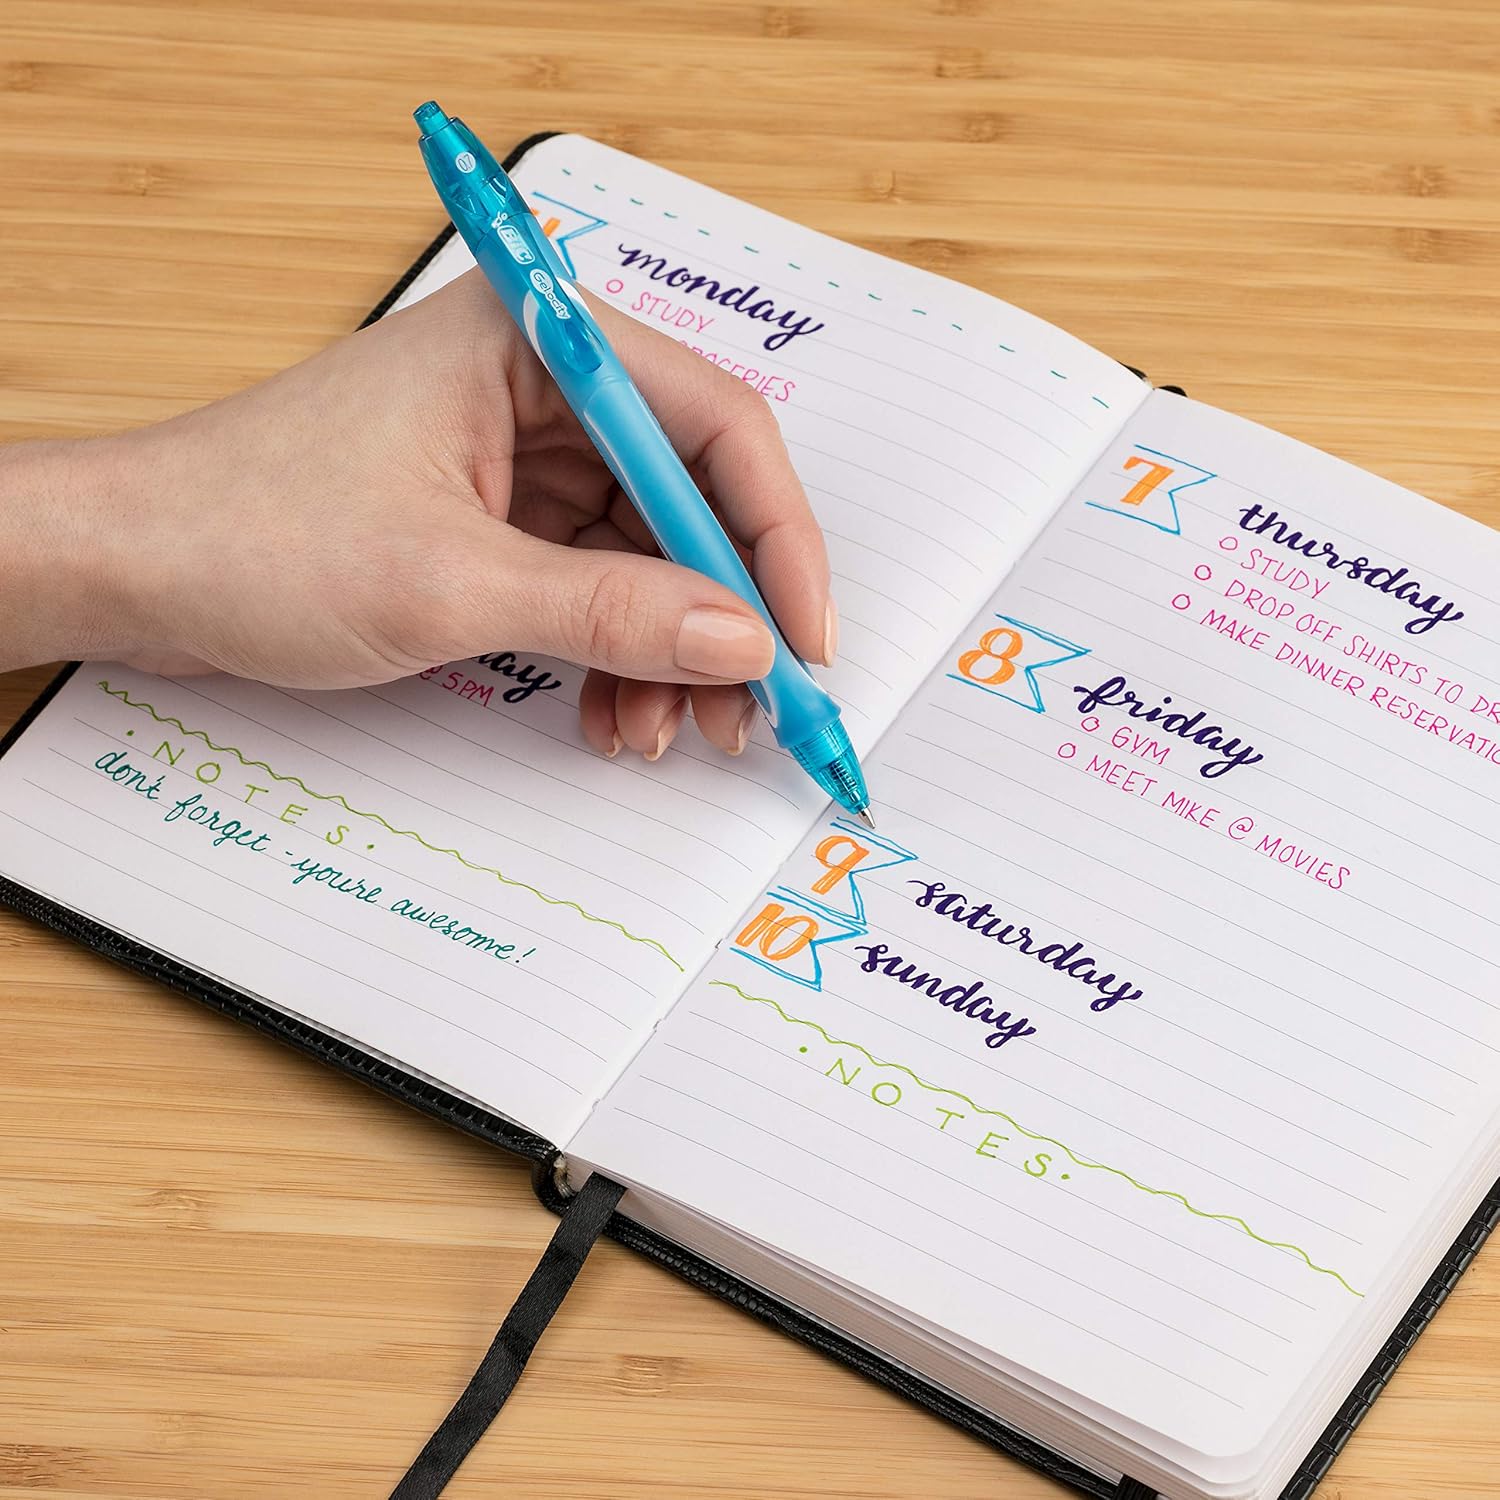 0.7
BIC
Gelocity
monday
STUDY
GROCERIES
@ 5PM
• NOTES •
don't forget - you're awesome!
7 thursday
STUDY
DROP OFF SHIRTS TO
MAKE DINNER
8 friday
GYM
MEET MIKE @ MOVIES
9 saturday
10 sunday
• NOTES •